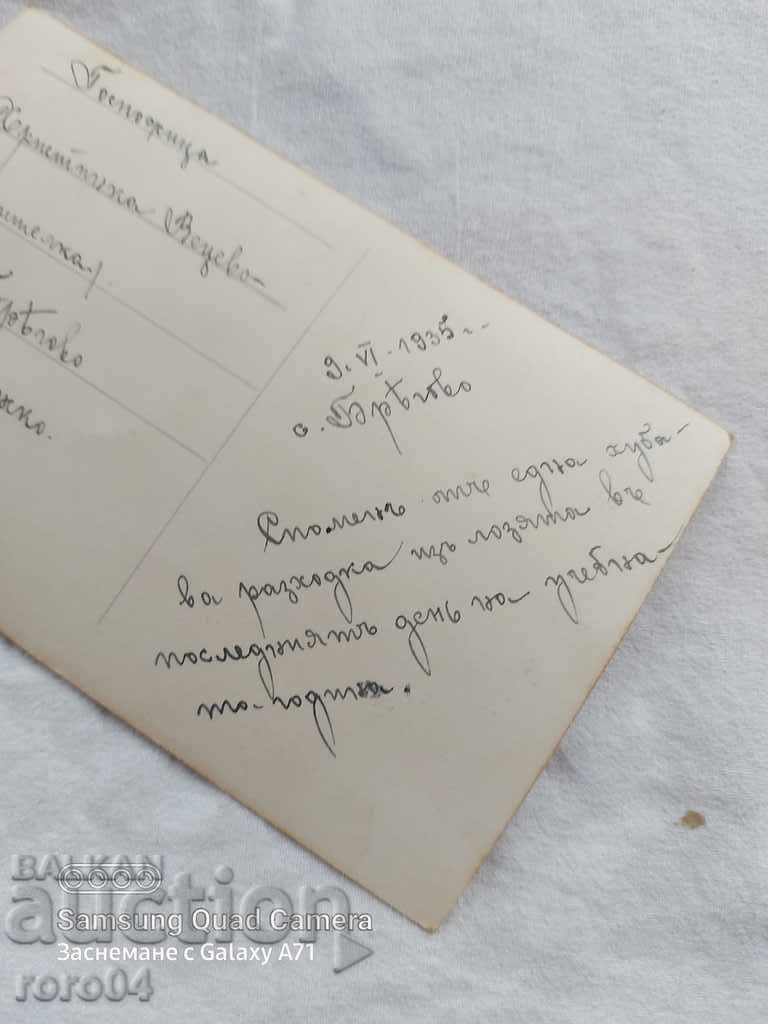 Госпожица
Венево-
Брѣгово
9. VI. 1935 г.
с. Брѣгово
Споменъ отъ една хуба-
ва разходка изъ лозята въ
последниятъ день на учебна-
та година.
BALKAN
auction
Samsung Quad Camera
Заснемане с Galaxy A71
roro04